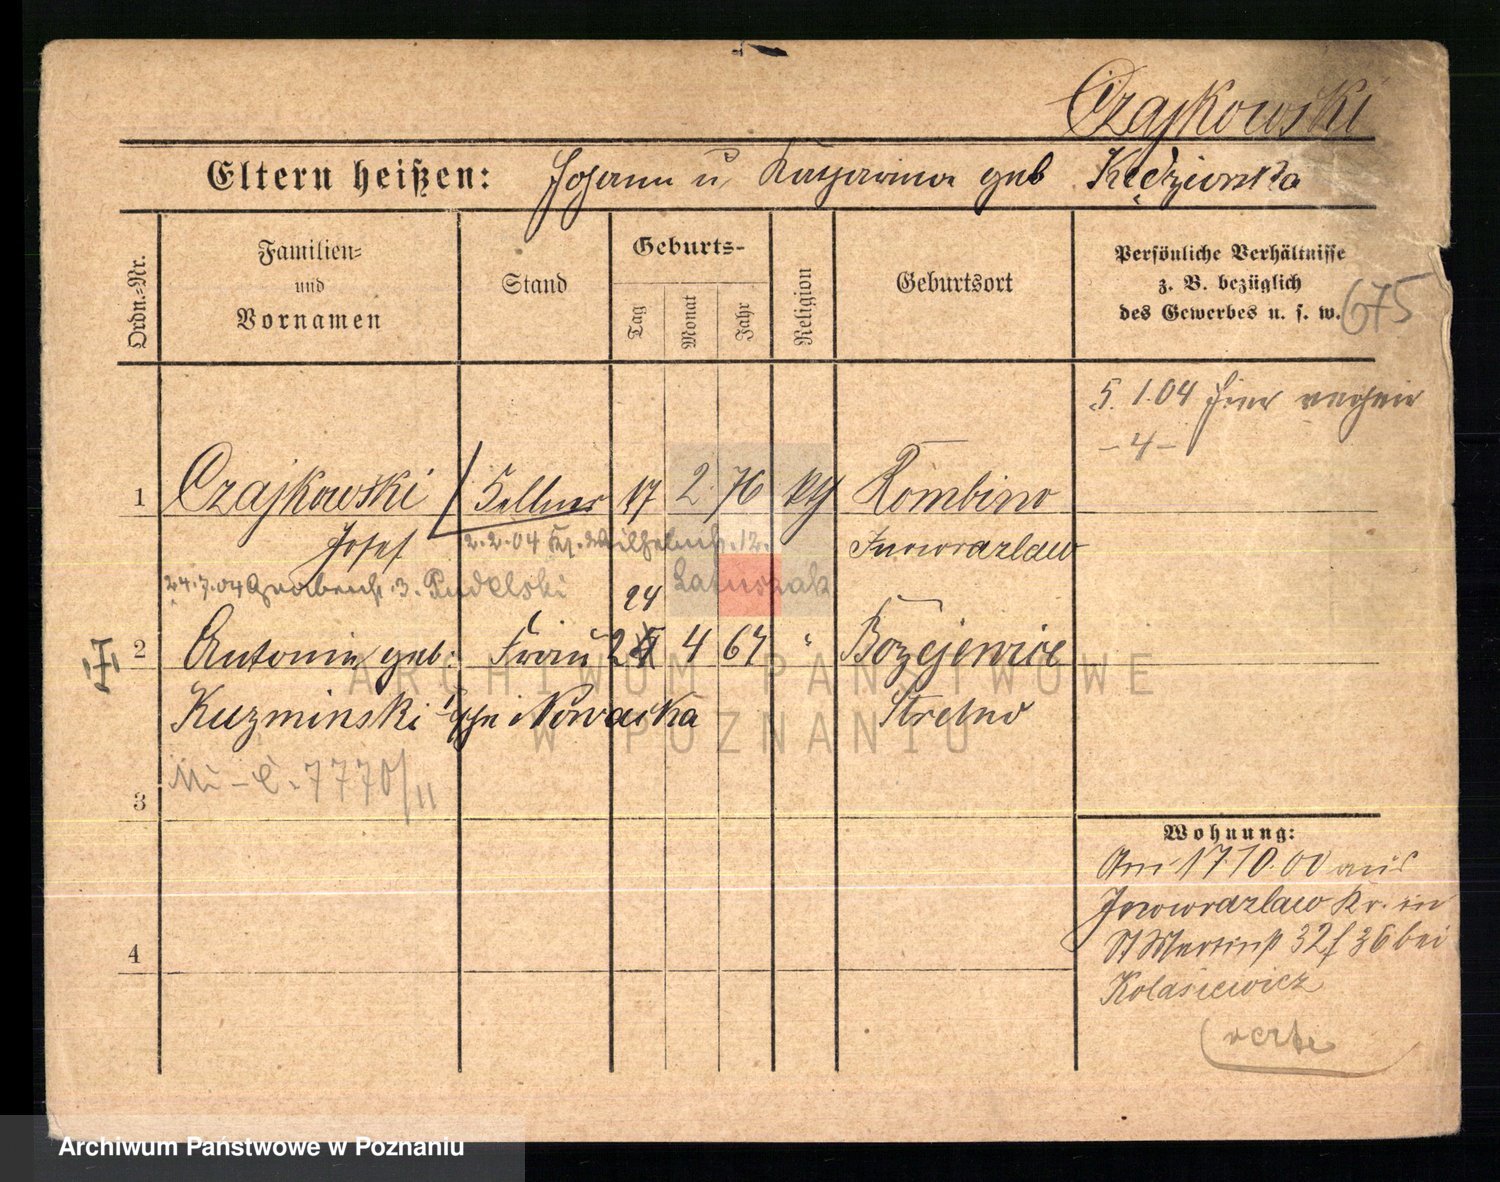 Czajkowski
Eltern heißen: Johann u. Katharina geb Kędzierska
Ordn.-Nr.
Familien- und Vornamen
Stand
Geburts-
Tag
Monat
Jahr
Religion
Geburtsort
Persönliche Verhältnisse
z. B. bezüglich
des Gewerbes u. s. w.
675
5.1.04 hier
-4-
1 Czajkowski Kellner 17 2 76 kth Rombino
Josef 2.2.04 Kl. Wilhelmstr. 12. Inowrazlaw
24.7.04 3. Rudelski 24 Latuszak
2 Antonie geb. Frau 4 67 " Bozejewice
Kuzminski Nowacka Strelno
7770/11
3
4
Wohnung:
Am 17.10.00 aus
Inowrazlaw Kr. in
St Martinstr 32 f 36 bei
Kolasiewicz
verte
ARCHIWUM PAŃSTWOWE
W POZNANIU
Archiwum Państwowe w Poznaniu